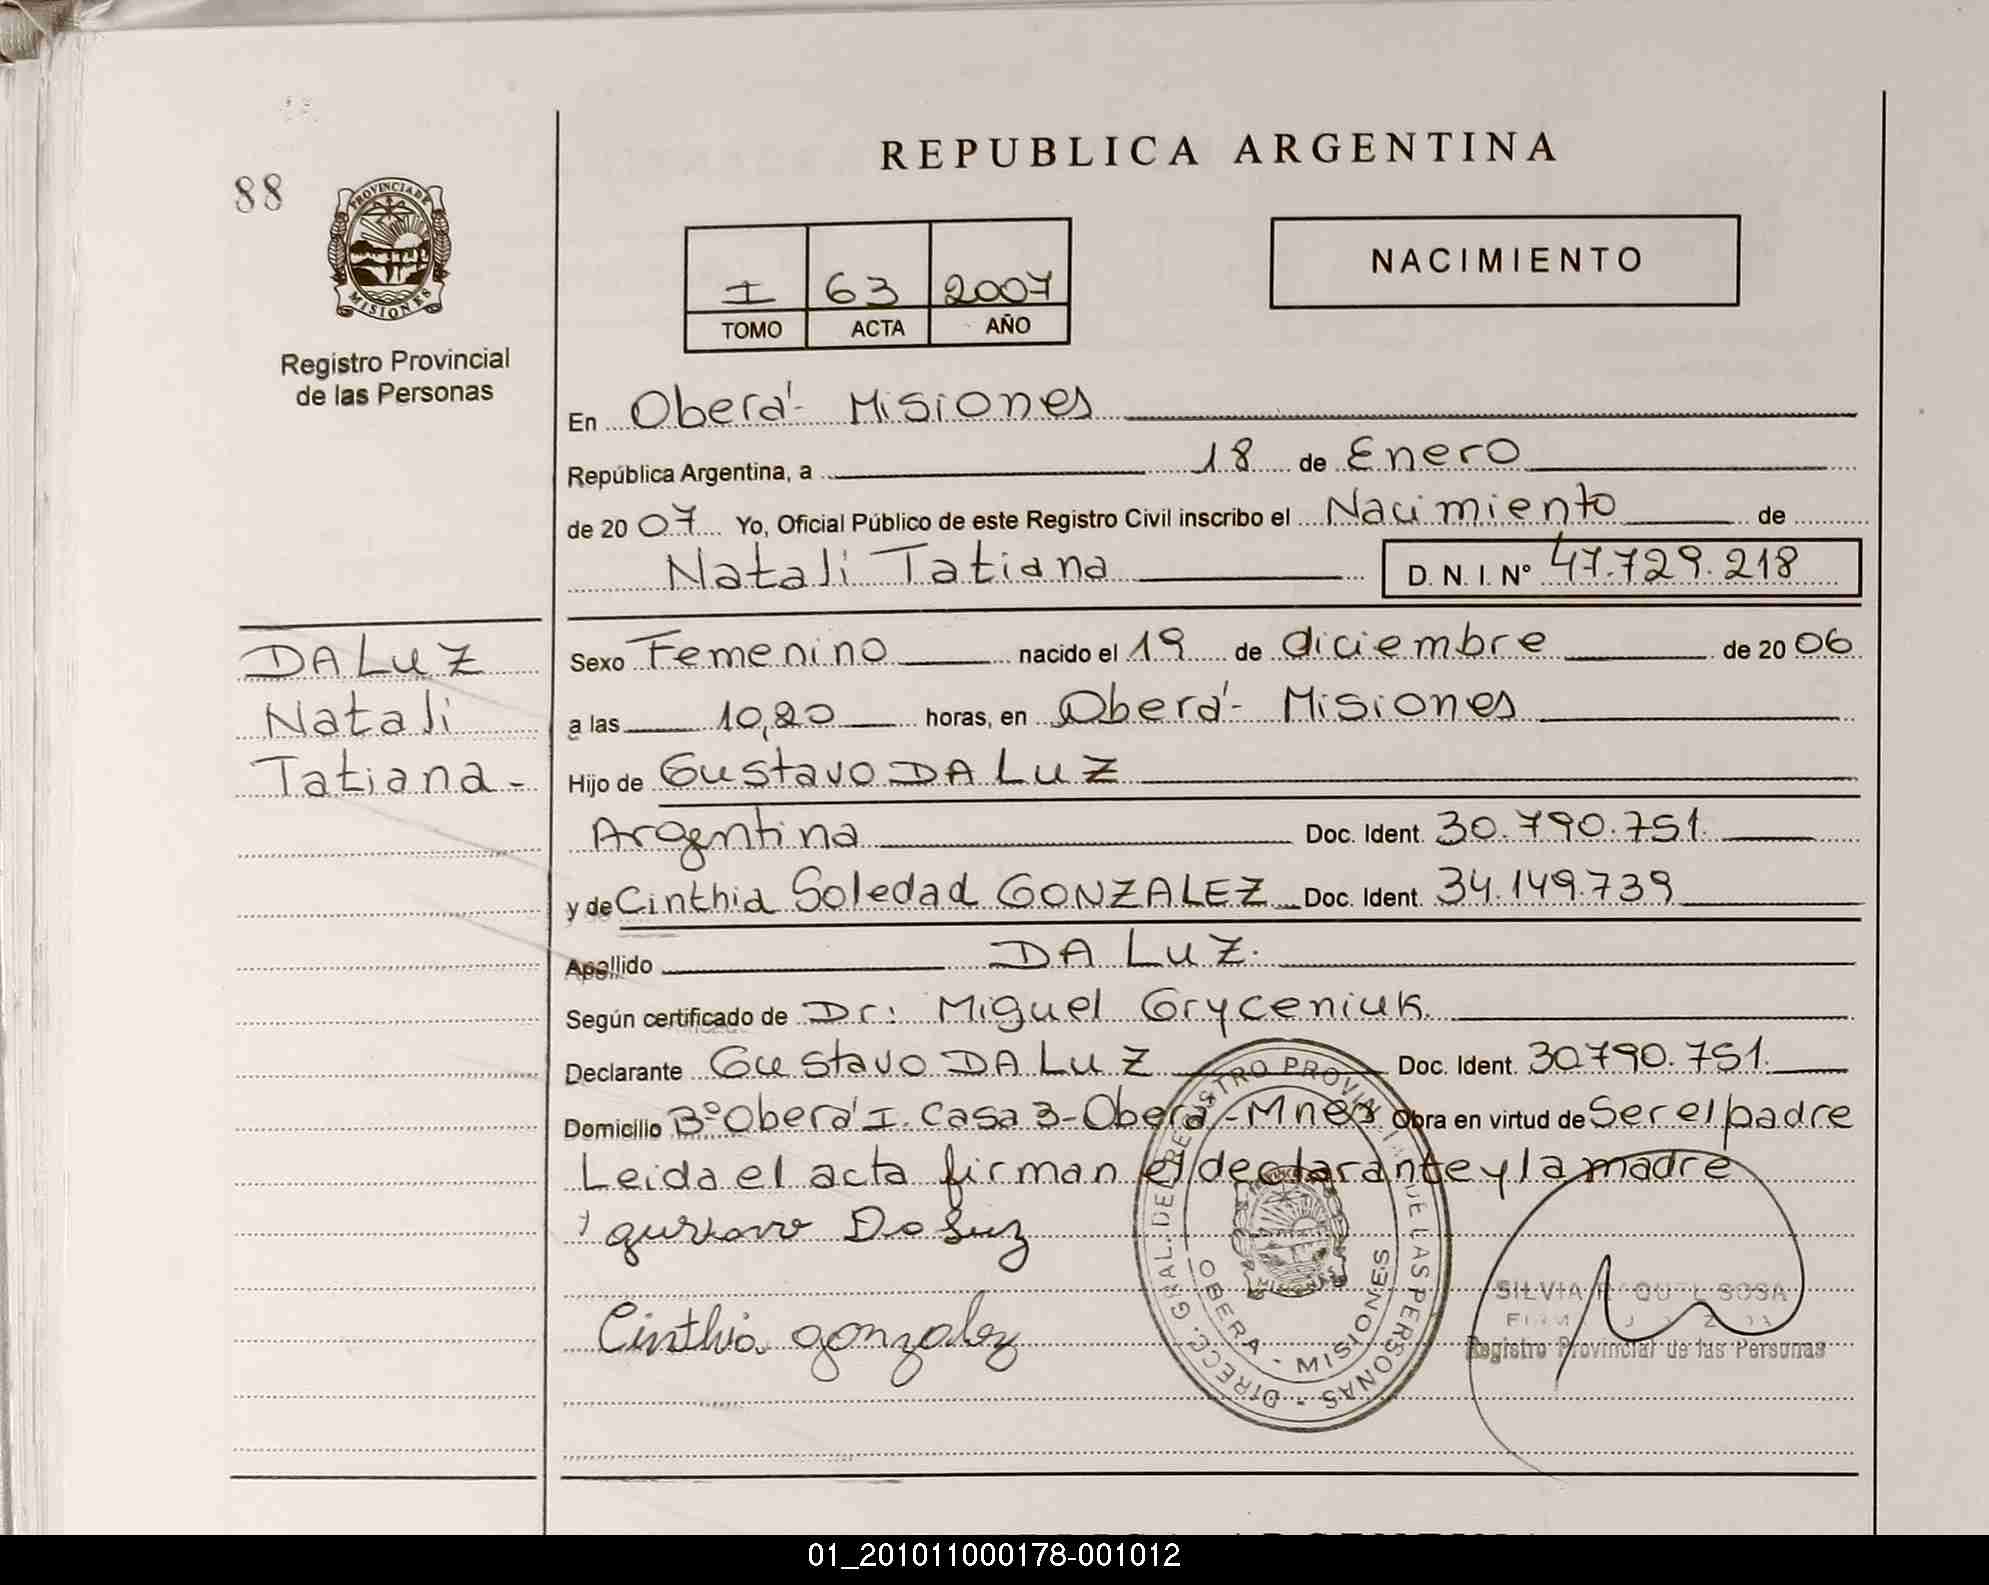 REPUBLICA ARGENTINA
88
PROVINCIA DE
MISIONES
NACIMIENTO
I 63 2007
TOMO ACTA AÑO
Registro Provincial
de las Personas
En Oberá - Misiones
República Argentina, a 18 de Enero
de 2007 Yo, Oficial Público de este Registro Civil inscribo el Nacimiento de
Natali Tatiana D. N. I. Nº 47.729.218
DA LUZ
Natali
Tatiana -
Sexo Femenino nacido el 19 de diciembre de 2006
a las 10,20 horas, en Oberá - Misiones
Hijo de Gustavo DA LUZ
Argentina Doc. Ident. 30.790.751.
y de Cinthia Soledad GONZALEZ Doc. Ident. 34.149.739
Apellido DA LUZ.
Según certificado de Dr: Miguel Gryceniuk
Declarante Gustavo DA LUZ Doc. Ident. 30790.751.
Domicilio Bº Oberá I. Casa 3 - Oberá - Mnes Obra en virtud de Ser el padre
Leida el acta firman el declarante y la madre
gustavo Da Luz
Cinthia gonzalez
DIRECC. GRAL. DEL REGISTRO PROVINCIAL DE LAS PERSONAS -
OBERA - MISIONES
MISIONES
SILVIA RAQUEL SOSA
Registro Provincial de las Personas
01_201011000178-001012